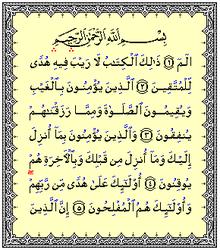 بِسْمِ اللَّهِ الرَّحْمَٰنِ الرَّحِيمِ
الٓمٓ ۝١ ذَٰلِكَ الْكِتَابُ لَا رَيْبَ فِيهِ هُدًى
لِّلْمُتَّقِينَ ۝٢ الَّذِينَ يُؤْمِنُونَ بِالْغَيْبِ
وَيُقِيمُونَ الصَّلَوٰةَ وَمِمَّا رَزَقْنَاهُمْ
يُنفِقُونَ ۝٣ وَالَّذِينَ يُؤْمِنُونَ بِمَا أُنزِلَ
إِلَيْكَ وَمَا أُنزِلَ مِن قَبْلِكَ وَبِالْآخِرَةِ هُمْ
يُوقِنُونَ ۝٤ أُولَٰئِكَ عَلَىٰ هُدًى مِّن رَّبِّهِمْ
وَأُولَٰئِكَ هُمُ الْمُفْلِحُونَ ۝٥ إِنَّ الَّذِينَ